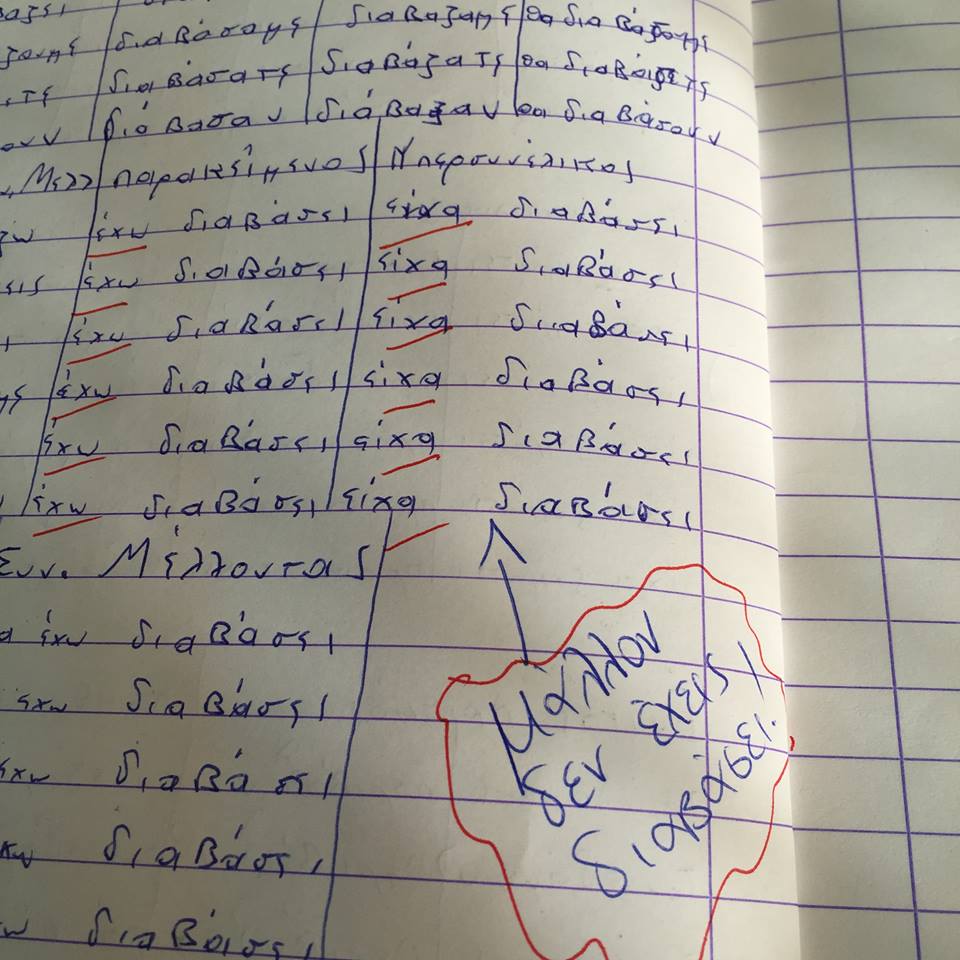 διαβάσαμε διαβάζαμε θα διαβάζουμε
διαβάσατε διαβάζατε θα διαβάσετε
διάβασαν διάβαζαν θα διαβάσουν
Μελλ παρακείμενος Υπερσυνέλικος
έχω διαβάσει είχα διαβάσει
έχω διαβάσει είχα διαβάσει
έχω διαβάσει είχα διαβάσει
έχω διαβάσει είχα διαβάσει
έχω διαβάσει είχα διαβάσει
έχω διαβάσει είχα διαβάσει
Συν. Μέλλοντας
έχω διαβάσει
έχω διαβάσει
έχω διαβάσει
διαβάσει
διαβάσει
Μάλλον
δεν έχεις
διαβάσει!